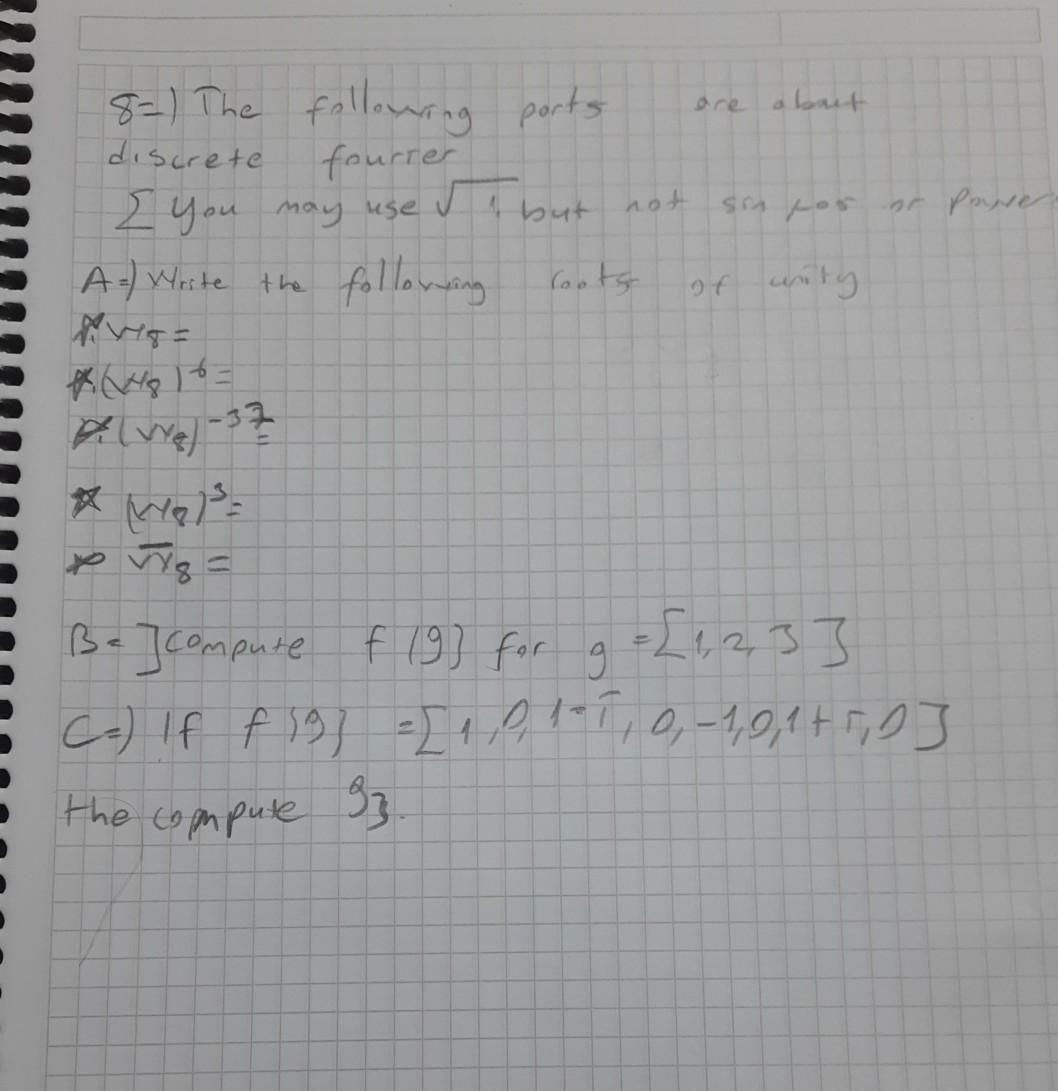 8=) The following parts are about
discrete fourier
[ You may use √ i but not sin cos or Power
A=) Write the following roots of unity
W8 =
(W8)^6 =
(W8)^-37 =
(W8)^3 =
W̅8 =
B=] compute f{g} for g = [1, 2, 3]
C=) If f{g} = [1, 0, 1-i, 0, -1, 0, 1+i, 0]
the compute g3.